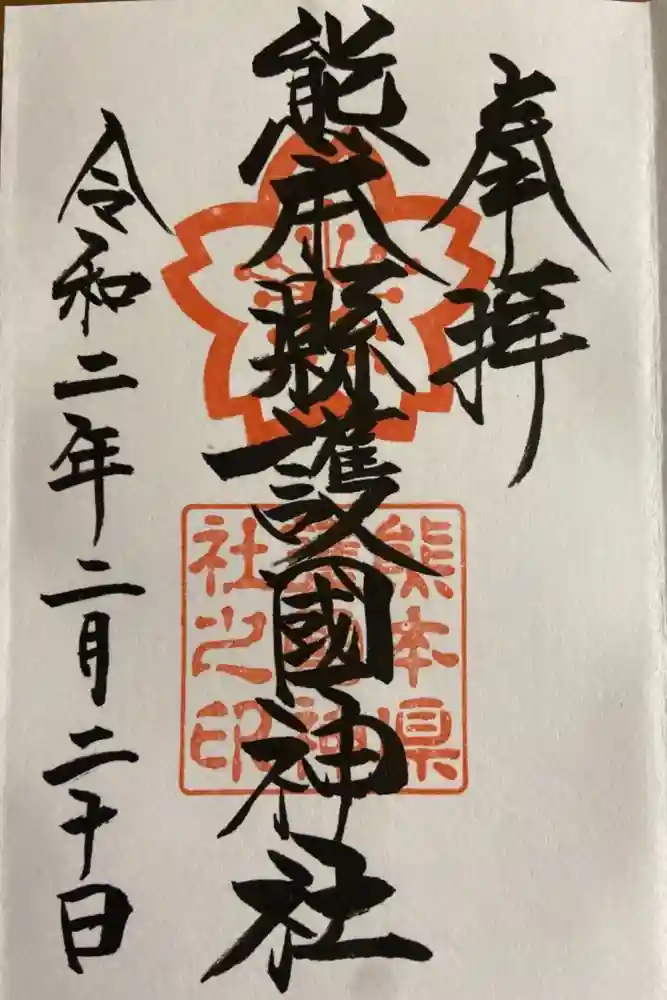 奉拝
熊本縣護國神社
熊本県
護國神
社之印
令和二年二月二十日